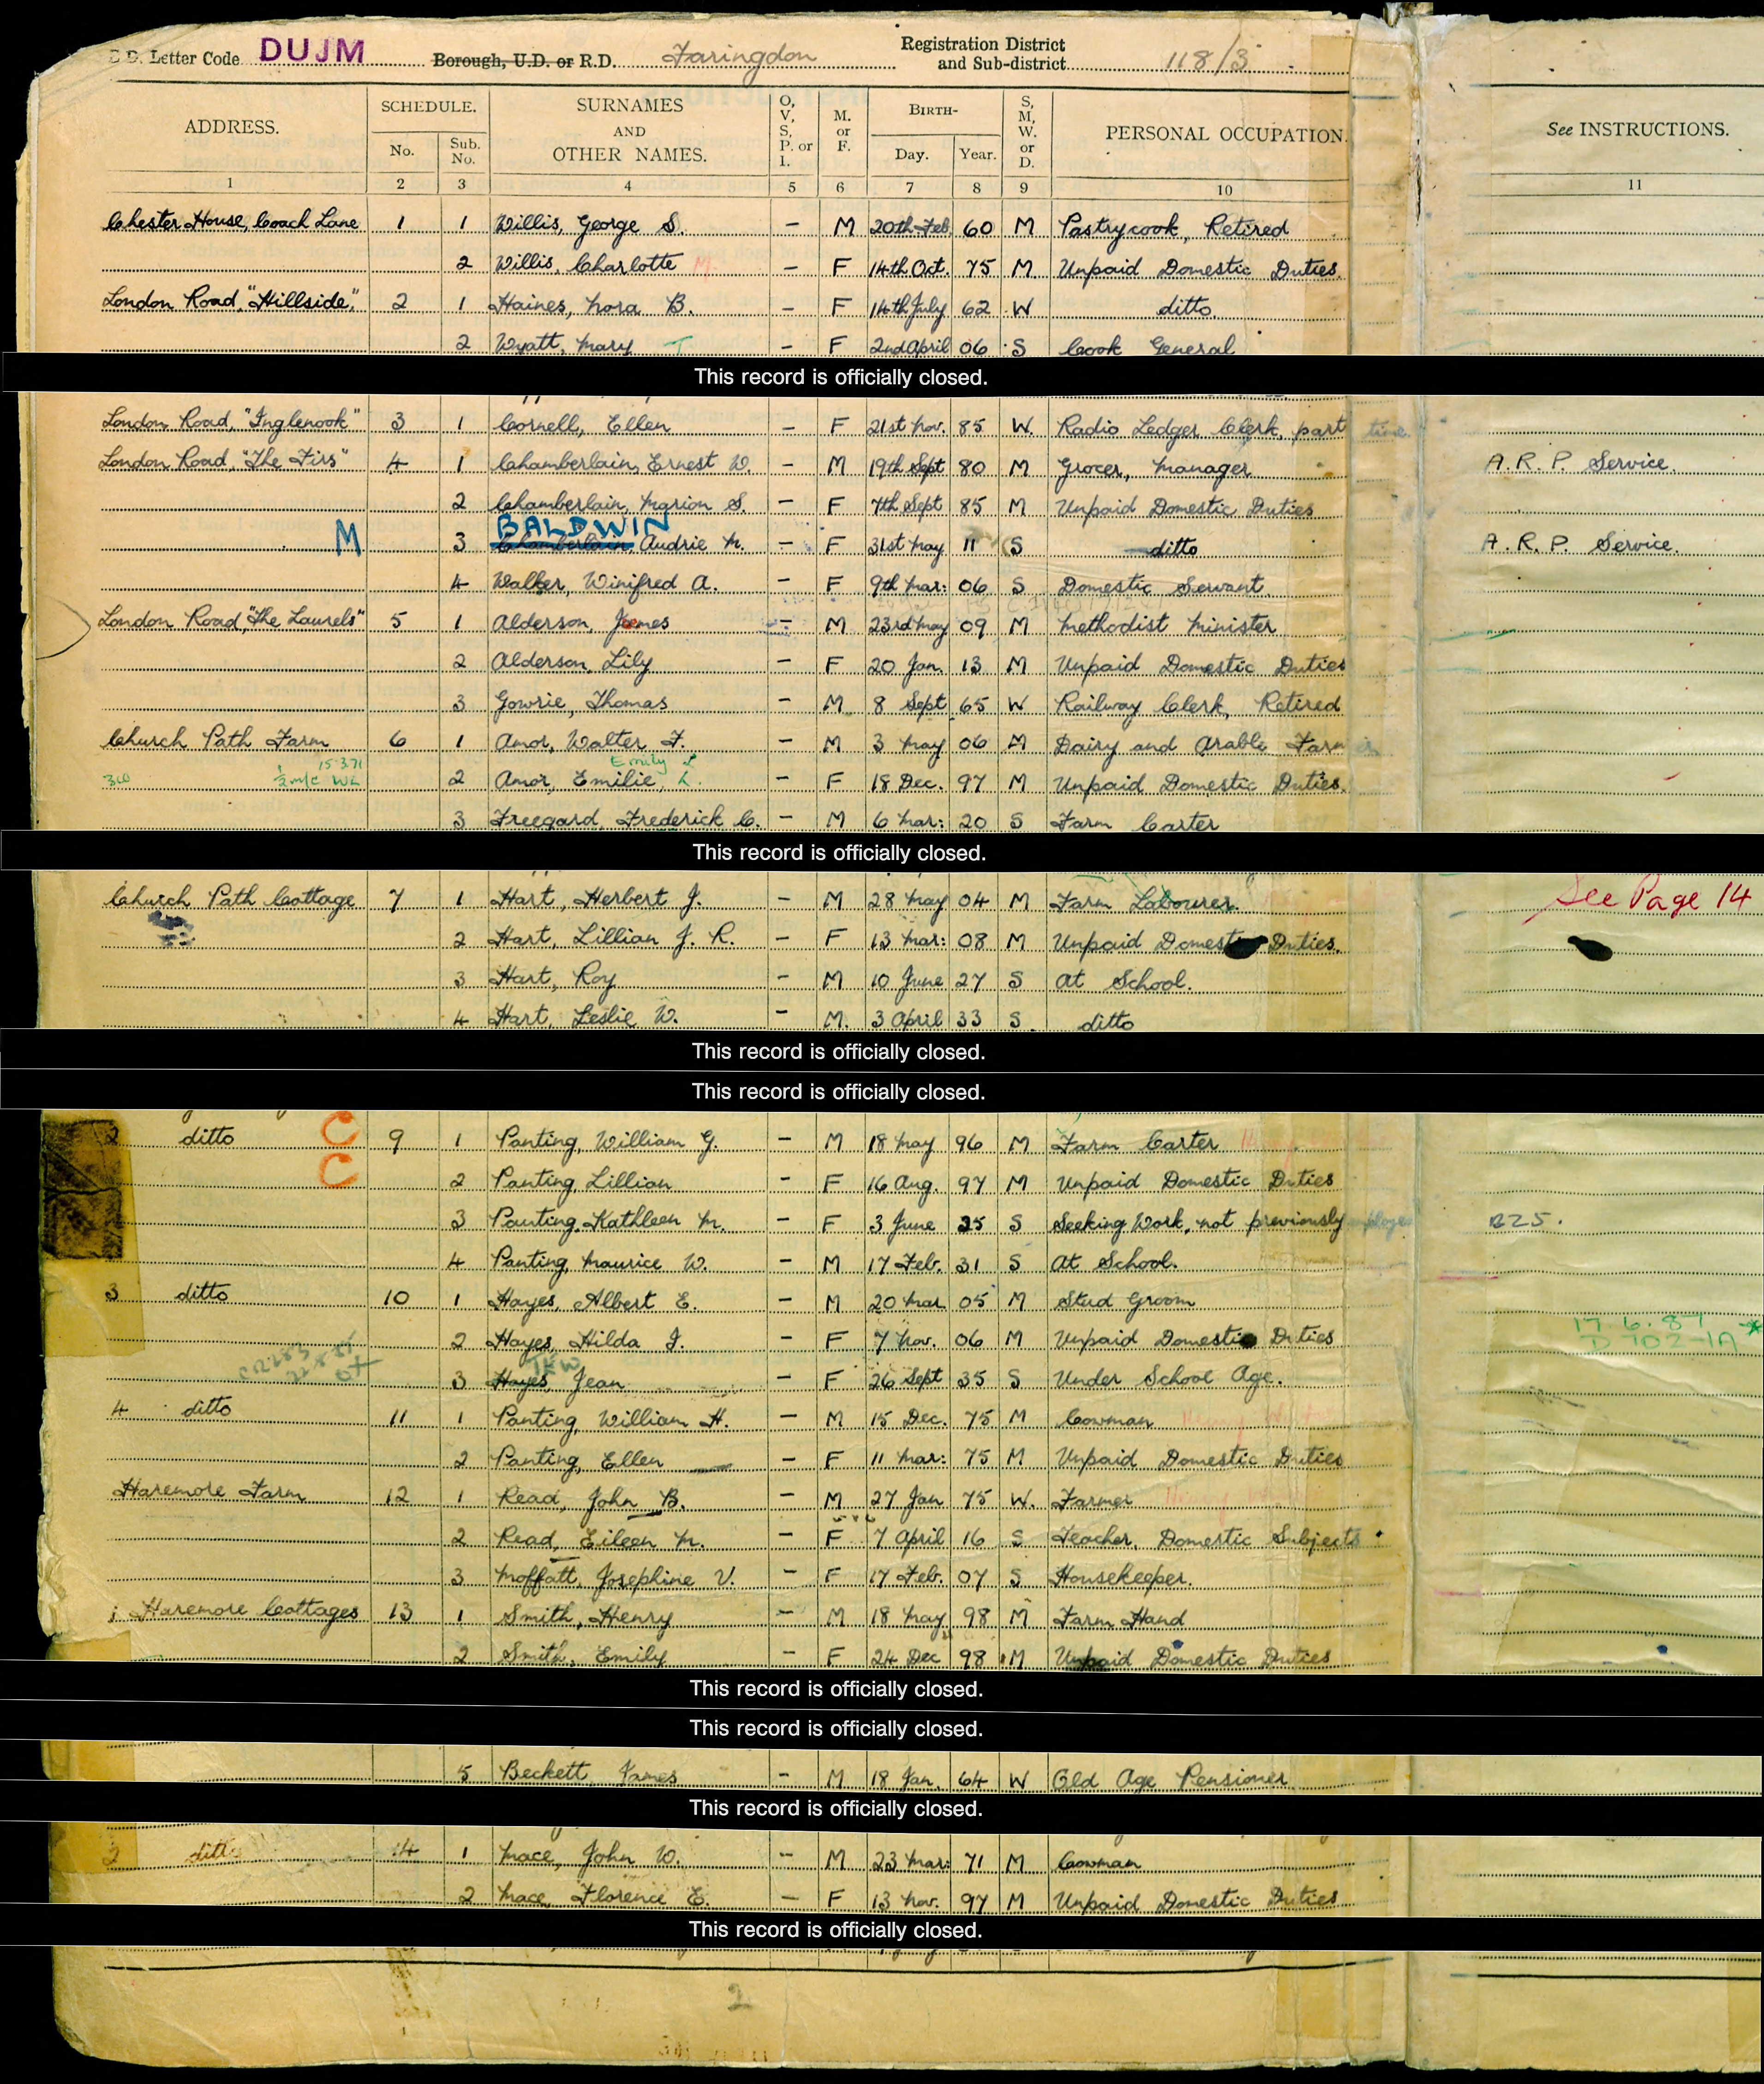 E.D. Letter Code DUJM Borough, U.D. or R.D. Faringdon Registration District and Sub-district 118/3
ADDRESS. SCHEDULE. No. Sub. No. SURNAMES AND OTHER NAMES. O, V, S, P. or I. M. or F. BIRTH- Day. Year. S, M, W. or D. PERSONAL OCCUPATION. See INSTRUCTIONS.
1 2 3 4 5 6 7 8 9 10 11
Chester House, Coach Lane 1 1 Willis, George S. - M 20th Feb 60 M Pastrycook, Retired
2 Willis, Charlotte M. - F 14th Oct. 75 M Unpaid Domestic Duties.
London Road, "Hillside," 2 1 Haines, Nora B. - F 14th July 62 W ditto.
2 Wyatt, Mary T - F 2nd April 06 S Cook General
This record is officially closed.
London Road, "Inglenook" 3 1 Cornell, Ellen - F 21st Nov. 85 W. Radio Ledger Clerk, part time
London Road, "The Firs" 4 1 Chamberlain, Ernest W. - M 19th Sept 80 M Grocer, Manager A.R.P. Service.
2 Chamberlain, Marion S. - F 7th Sept 85 M Unpaid Domestic Duties
BALDWIN
M 3 Chamberlain, Audrie M. - F 31st May 11 S ditto A.R.P. Service.
4 Walker, Winifred A. - F 9th Mar: 06 S Domestic Servant
London Road, "The Laurels" 5 1 Alderson, James - M 23rd May 09 M Methodist Minister
2 Alderson, Lily - F 20 Jan. 13 M Unpaid Domestic Duties
3 Gowrie, Thomas - M 8 Sept 65 W Railway Clerk, Retired
Church Path Farm 6 1 Amor, Walter F. - M 3 May 06 M Dairy and Arable Farmer
15.3.71 Emily L
2 Amor, Emilie, L. - F 18 Dec. 97 M Unpaid Domestic Duties.
3 Freegard, Frederick C. - M 6 Mar: 20 S Farm Carter
This record is officially closed.
Church Path Cottage 7 1 Hart, Herbert J. - M 28 May 04 M Farm Labourer. See Page 14
2 Hart, Lillian J. R. - F 13 Mar: 08 M Unpaid Domestic Duties.
3 Hart, Roy - M 10 June 27 S At School.
4 Hart, Leslie W. - M. 3 April 33 S. ditto
This record is officially closed.
This record is officially closed.
2 ditto C 9 1 Panting, William G. - M 18 May 96 M Farm Carter
C 2 Panting, Lillian - F 16 Aug. 97 M Unpaid Domestic Duties
3 Panting, Kathleen M. - F 3 June 25 S Seeking Work, not previously B25.
4 Panting, Maurice W. - M 17 Feb. 31 S At School.
3 ditto 10 1 Hayes, Albert E. - M 20 Mar 05 M Stud Groom
17.6.87
2 Hayes, Hilda J. - F 7 Nov. 06 M Unpaid Domestic Duties
3 Hayes, Jean - F 26 Sept 35 S Under School Age.
4 ditto 11 1 Panting, William H. - M 15 Dec. 75 M Cowman
2 Panting, Ellen - F 11 Mar: 75 M Unpaid Domestic Duties
Haremore Farm 12 1 Read, John B. - M 27 Jan 75 W. Farmer
2 Read, Eileen M. - F 7 April 16 S Teacher, Domestic Subjects
3 Moffatt, Josephine V. - F 17 Feb. 07 S Housekeeper.
1 Haremore Cottages 13 1 Smith, Henry - M 18 May 98 M Farm Hand
2 Smith, Emily - F 24 Dec 98 M Unpaid Domestic Duties
This record is officially closed.
This record is officially closed.
5 Beckett, James - M 18 Jan. 64 W Old Age Pensioner
This record is officially closed.
2 ditto 14 1 Mace, John W. - M 23 Mar: 71 M Cowman
2 Mace, Florence E. - F 13 Nov. 97 M Unpaid Domestic Duties
This record is officially closed.
2